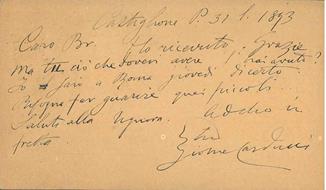 Castiglione P. 31 l. 1893
Caro Br. Ho ricevuto. Grazie
ma tu ciò che dovevi avere, l'hai avuto?
Io sarò a Roma giovedì di certo.
Bisogna far guarire quei piccoli.
Saluta alla signora. Addio in
fretta
Giosue Carducci